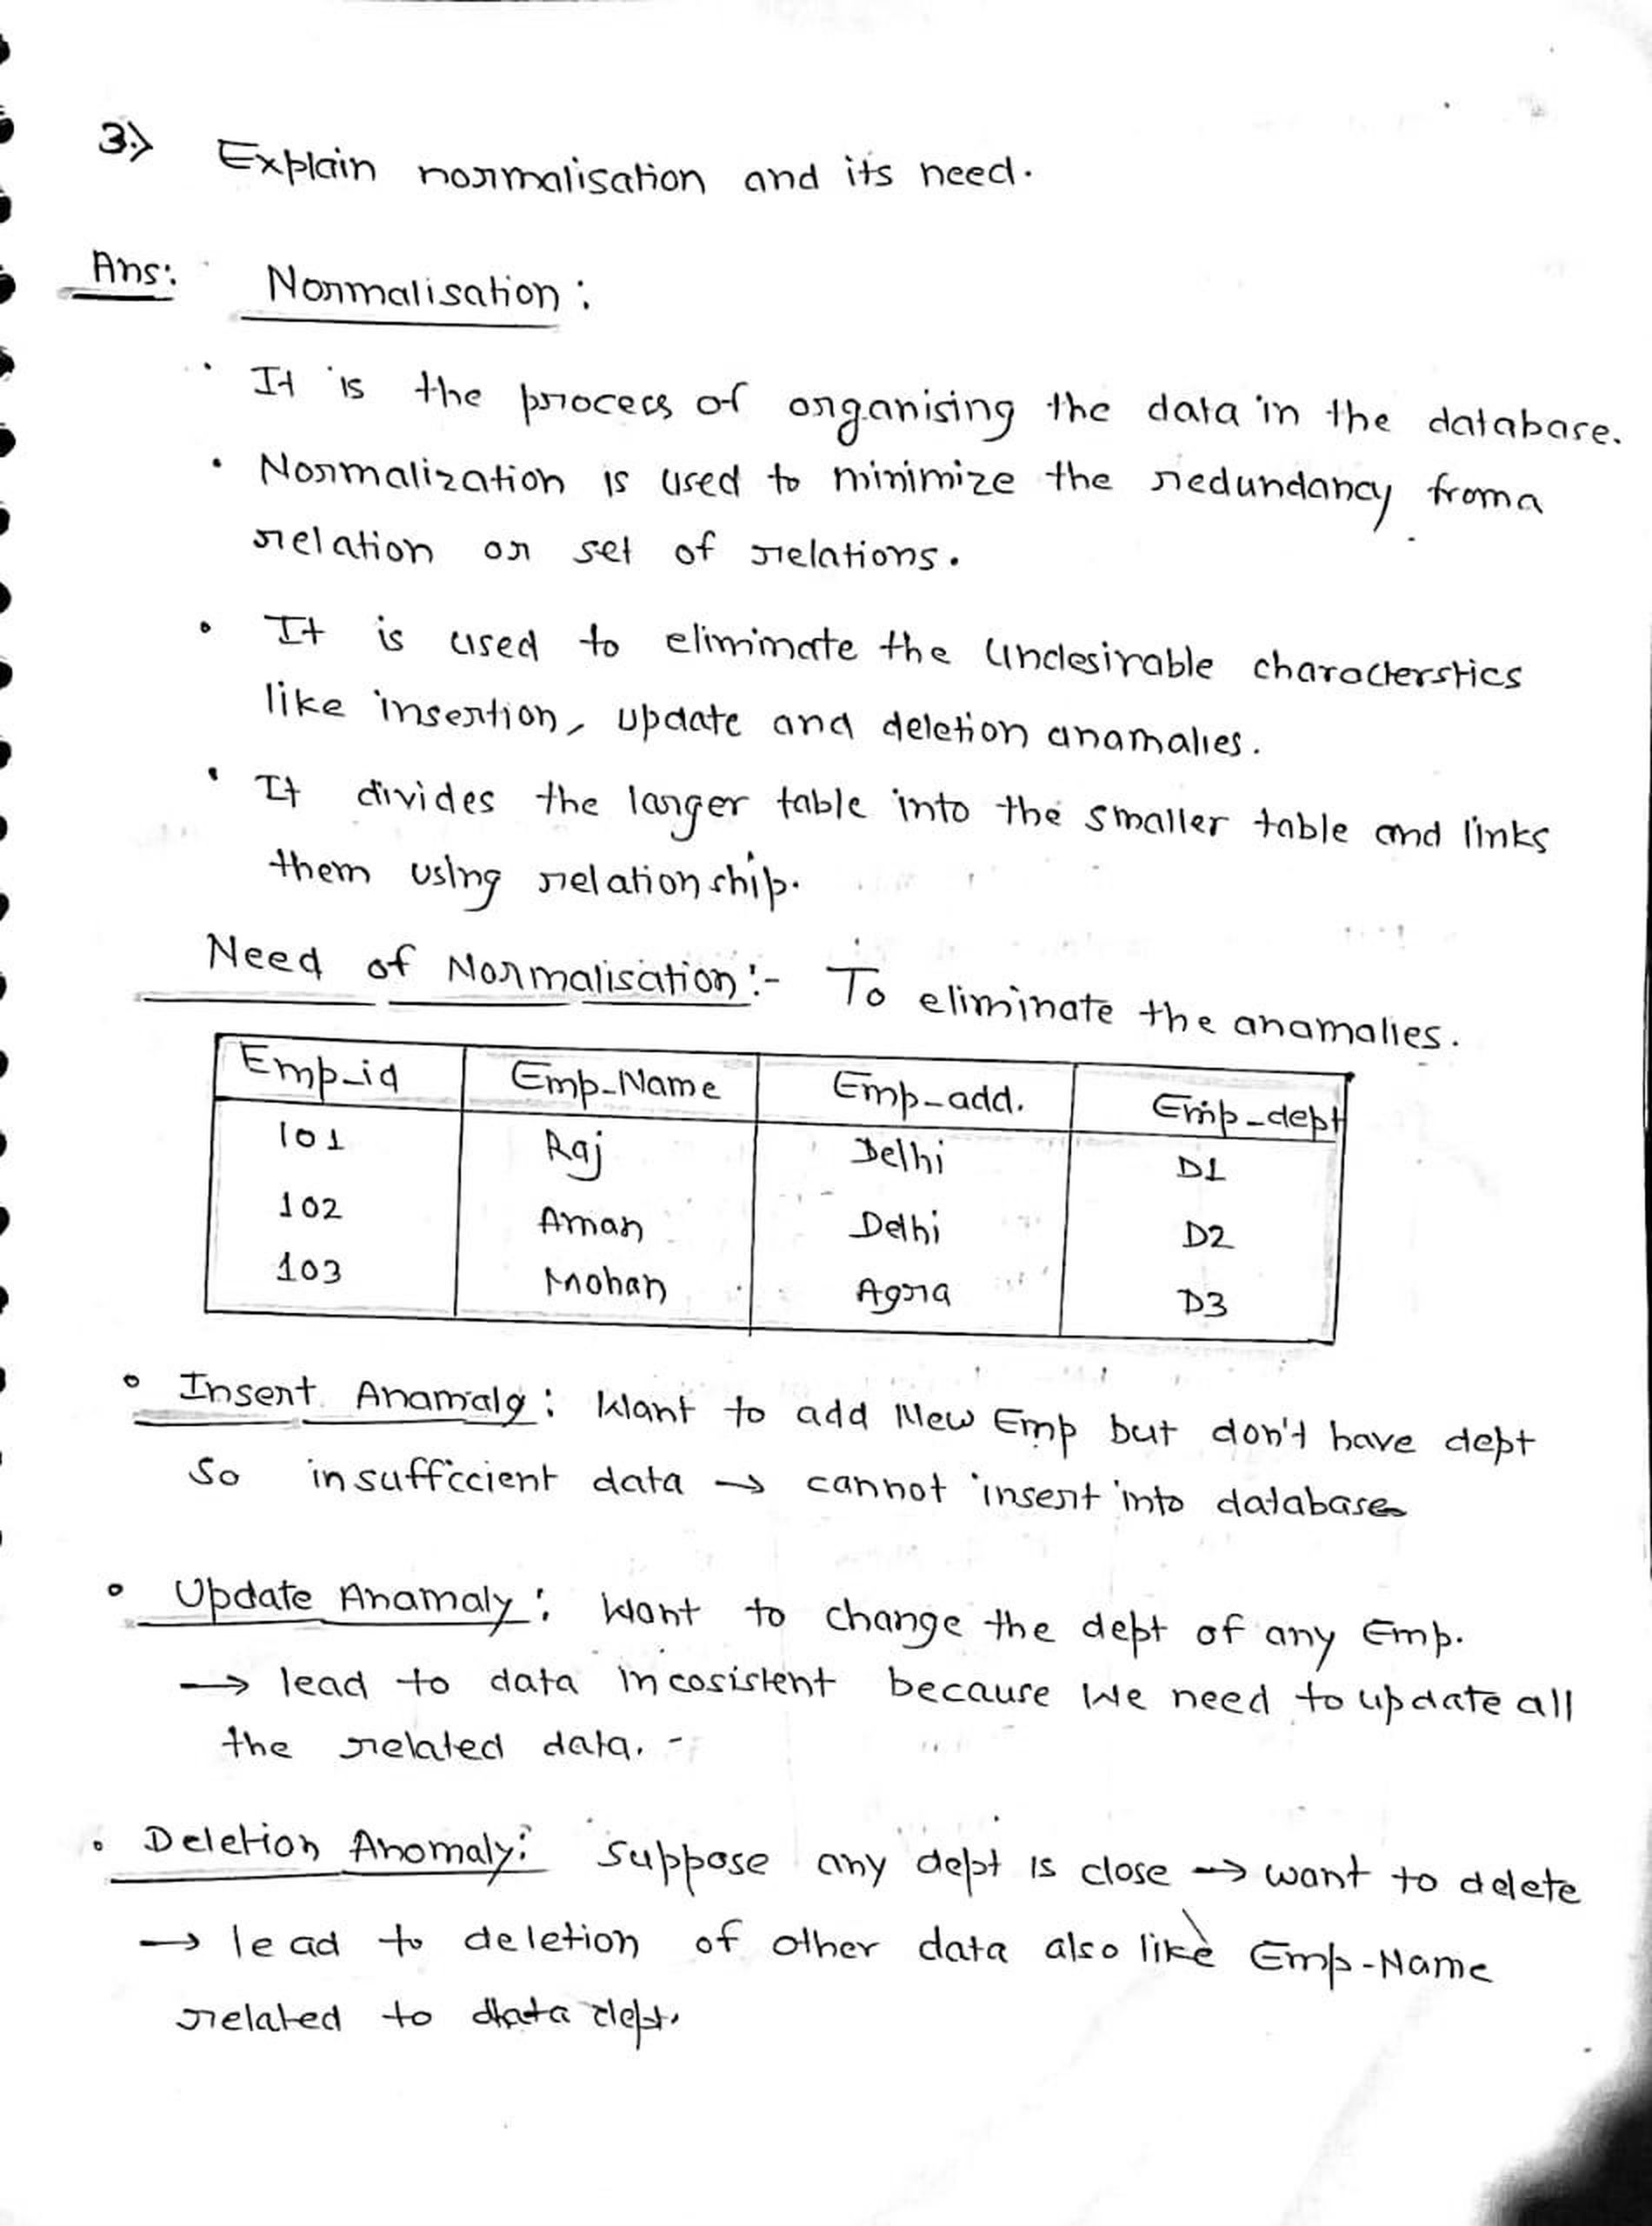 3.) Explain normalisation and its need.
Ans: Normalisation :
• It is the process of organising the data in the database.
• Normalization is used to minimize the redundancy from a
relation or set of relations.
• It is used to eliminate the undesirable characterstics
like insertion, update and deletion anamalies.
• It divides the larger table into the smaller table and links
them using relationship.
Need of Normalisation :- To eliminate the anamalies.
Emp_id Emp_Name Emp_add. Emp_dept
101 Raj Delhi D1
102 Aman Delhi D2
103 Mohan Agra D3
• Insert Anamaly : Want to add New Emp but don't have dept
so insufficient data → cannot insert into database
• Update Anamaly : Want to change the dept of any Emp.
→ lead to data incosistent because we need to update all
the related data. -
• Deletion Anomaly : Suppose any dept is close → want to delete
→ lead to deletion of other data also like Emp-Name
related to data dept.